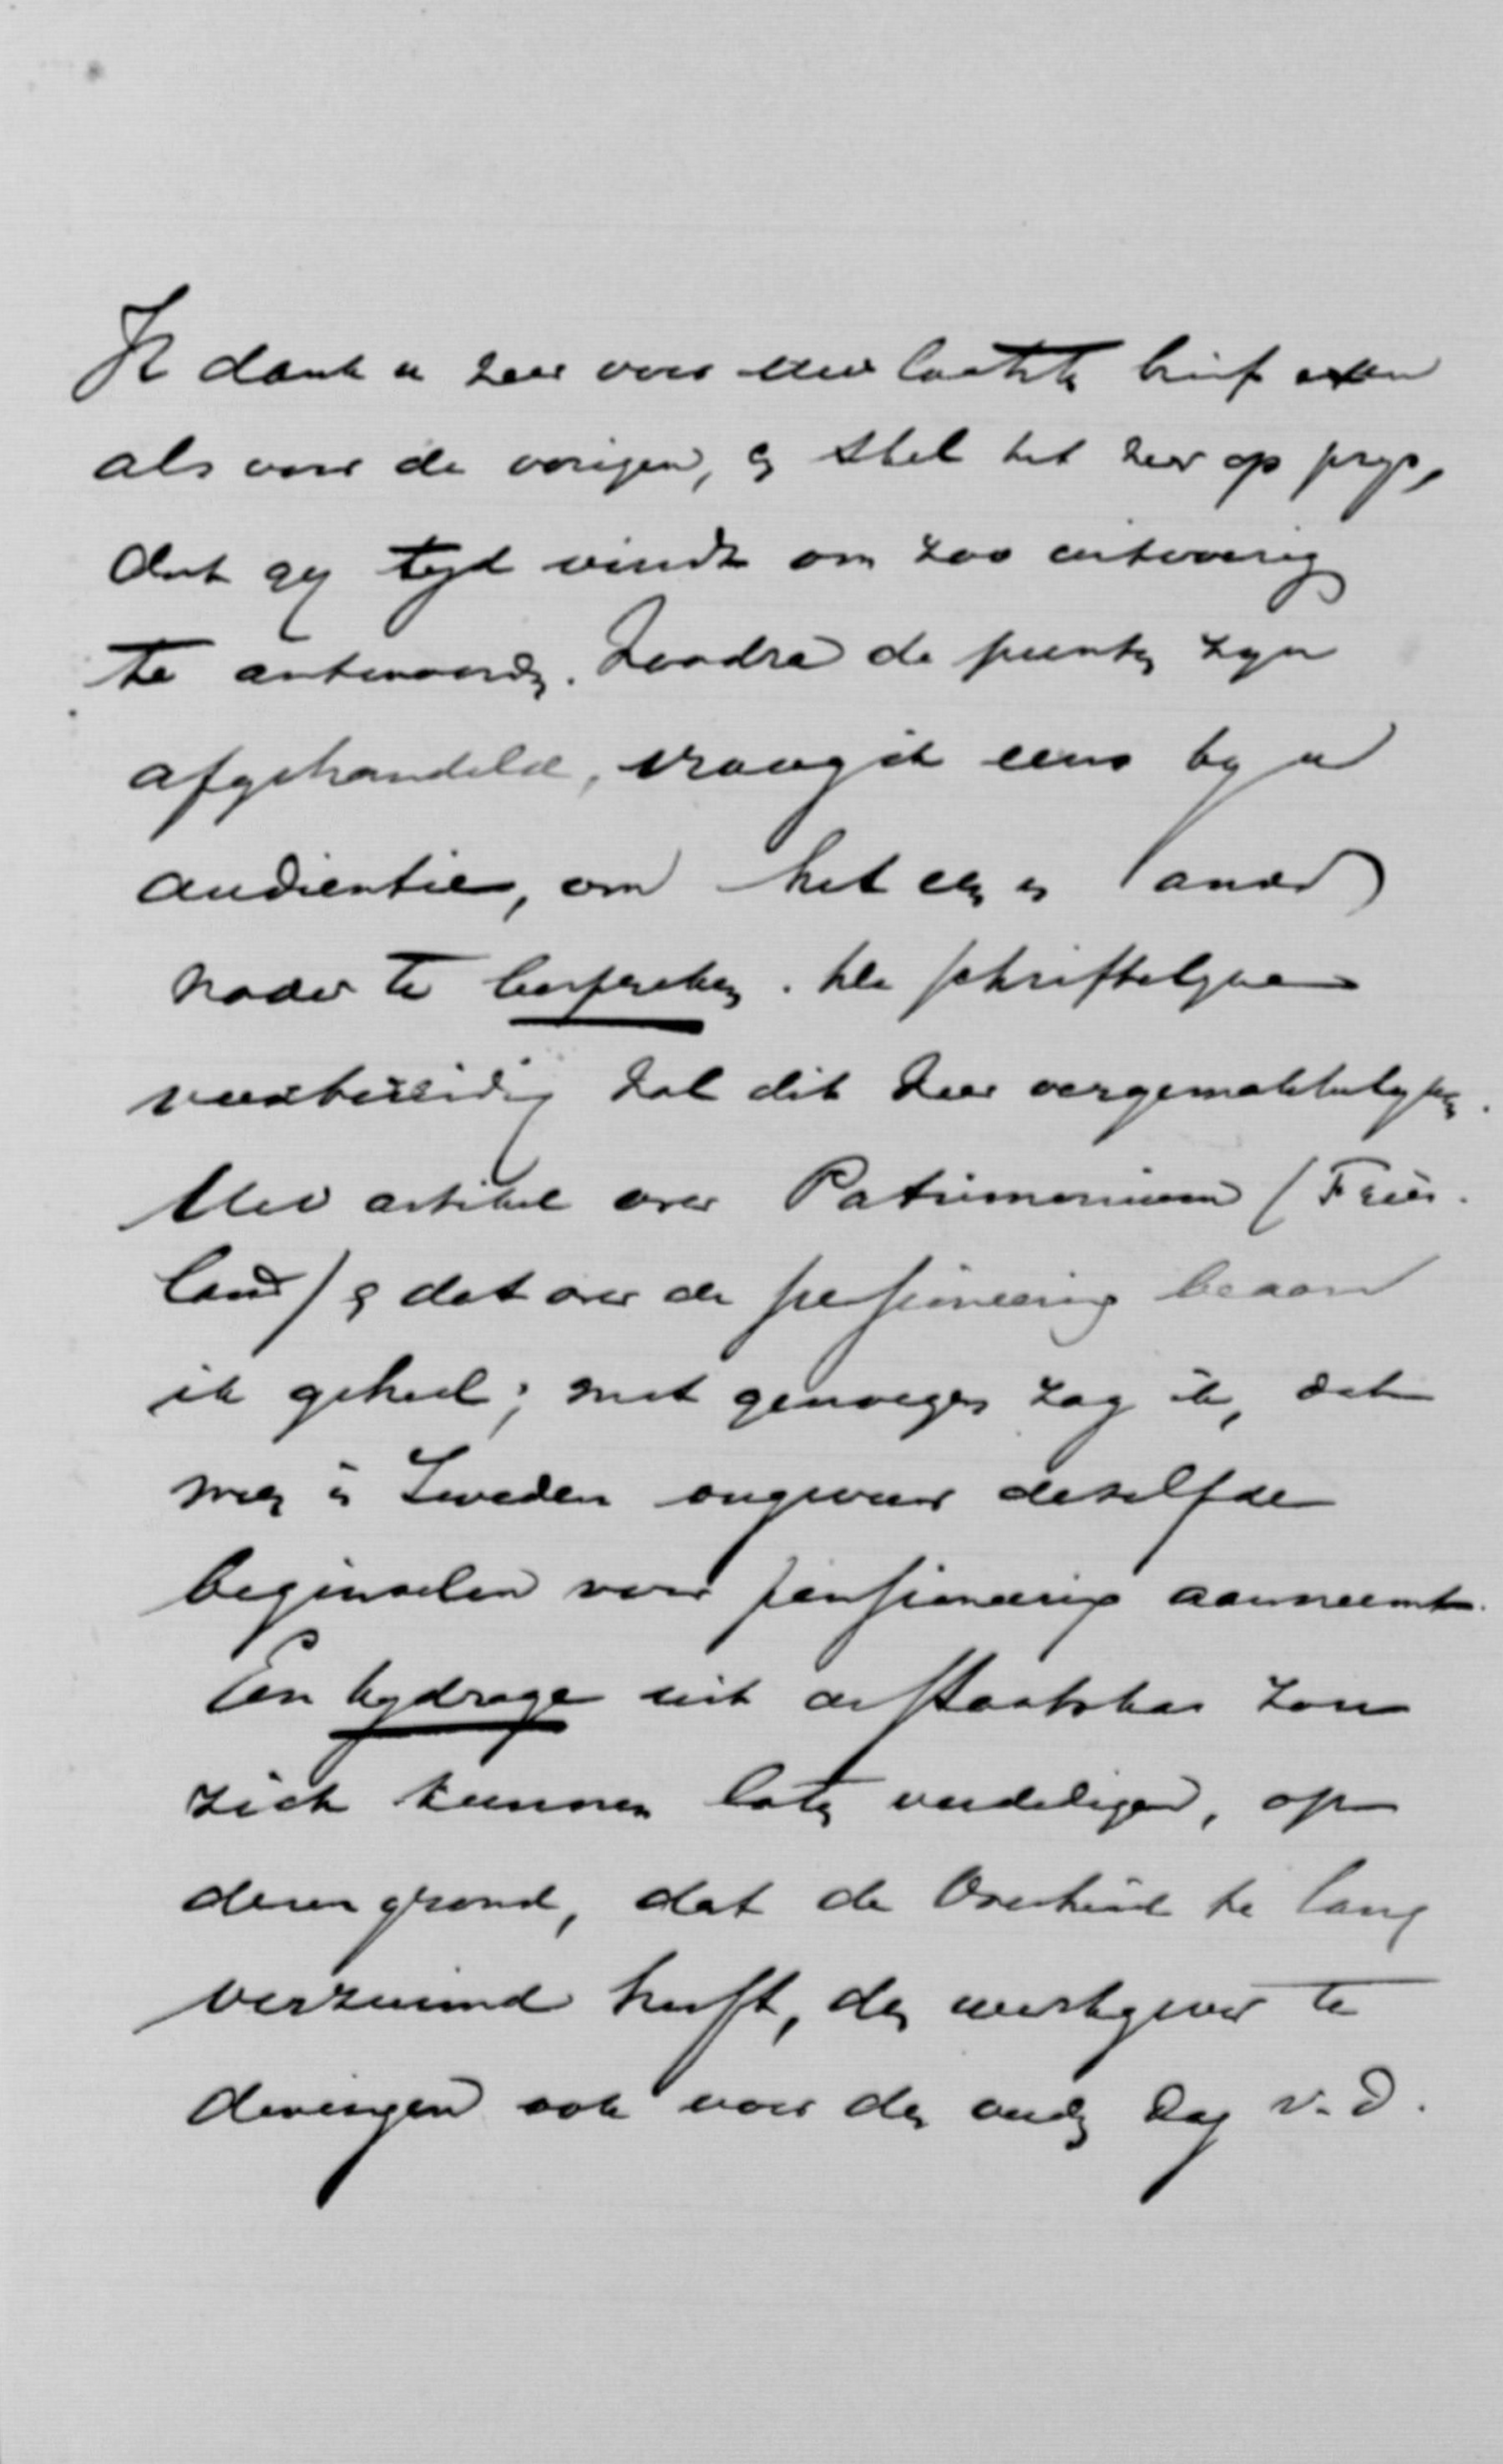 Ik dank u zeer voor uw laatste brief even
als voor de vorigen, en stel het zeer op prys,
dat gy tyd vindt om zoo uitvoerig
te antwoorden. Zoodra de punten zyn
afgehandeld, vraag ik eens by u
audientie, om het een en ander
nader te bespreken. De schriftelyke
voorbereiding zal dit zeer vergemakkelyken.
Uw artikel over Patrimonium (Fries.
land) en dat over de pensioneering beaam
ik geheel; met genoegen zag ik, dat
men in Zweden ongeveer dezelfde
beginselen voor pensioneering aanneemt.
Een bydrage uit de Staatskas zou
zich kunnen laten verdedigen, op
dezen grond, dat de Overheid te lang
verzuimd heeft, den werkgever te
dwingen ook voor den ouden dag v. d.